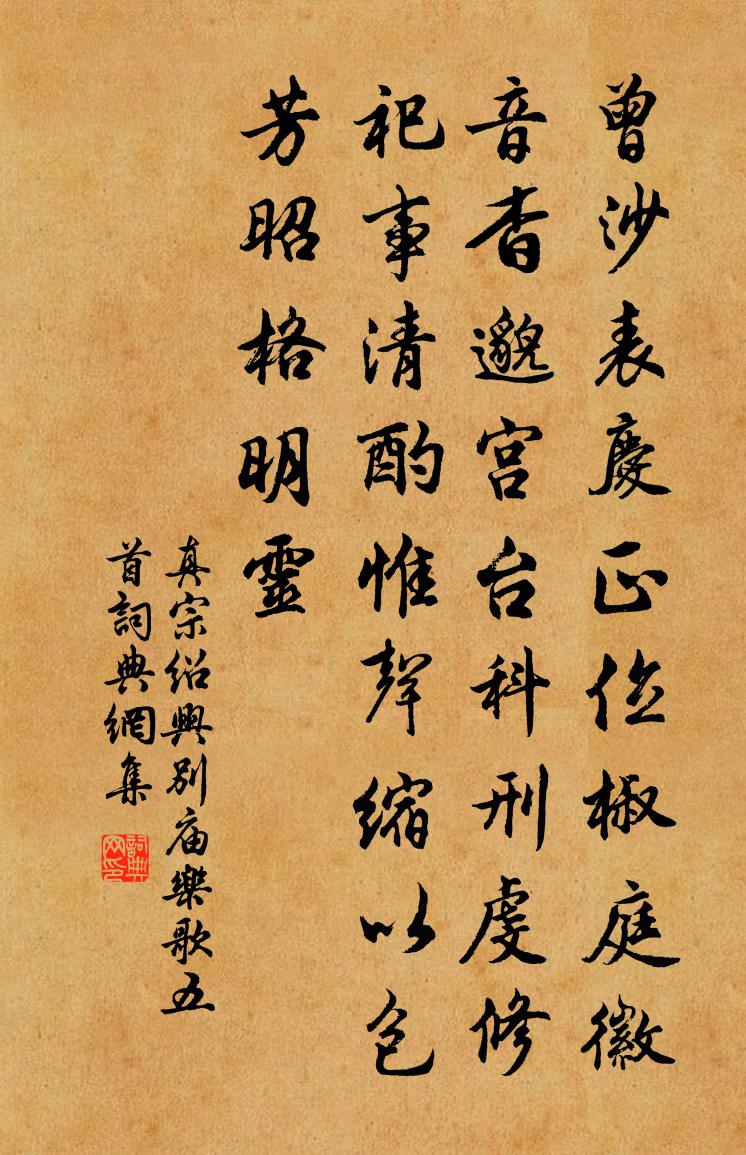 曾沙表慶正位椒庭徽
音杳邈宮台科刑虔修
祀事清酌惟聲縮以包
芳昭格明靈
真宗紹興別庙樂歌五
首詞典網集
詞典网印